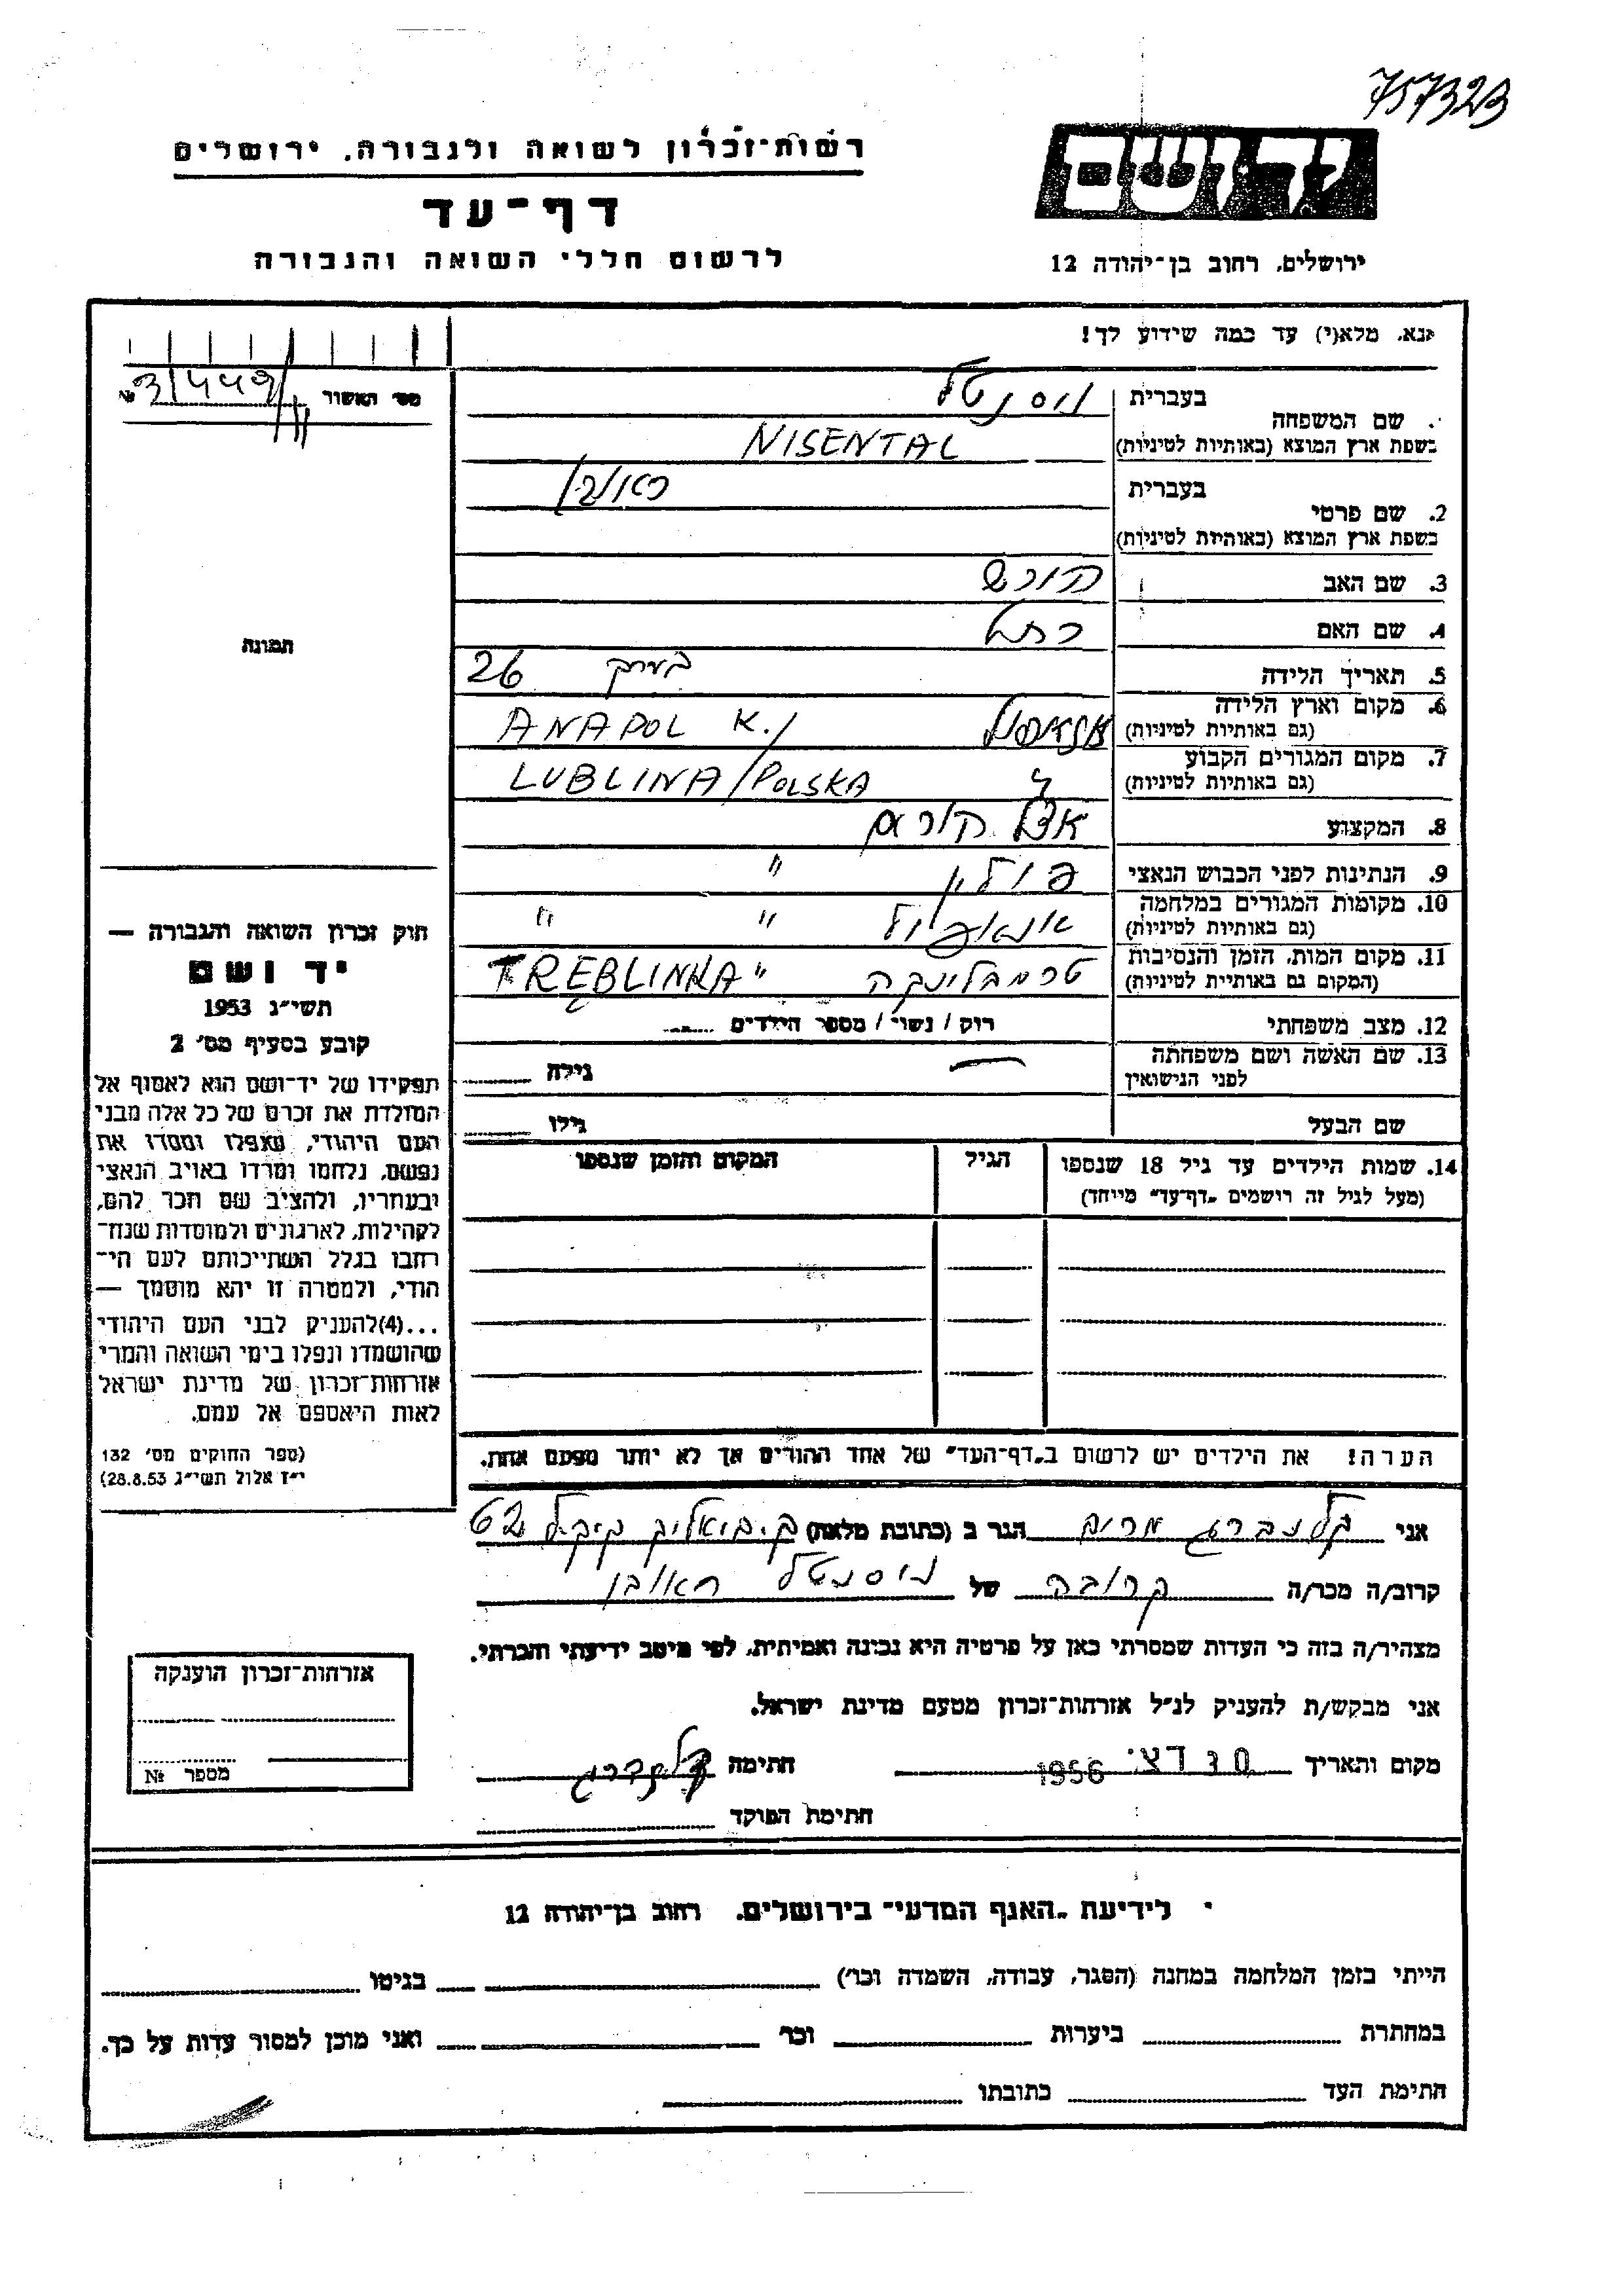 757323
רשות-זכרון לשואה ולגבורה, ירושלים
דף-עד
לרשום חללי השואה והגבורה
יד ושם
ירושלים, רחוב בן-יהודה 12
אנא, מלא(י) עד כמה שידוע לך!
מס' האשור №
1. שם המשפחה
בעברית ניסנטל
בשפת ארץ המוצא (באותיות לטיניות) NISENTAL
2. שם פרטי
בעברית ראובן
בשפת ארץ המוצא (באותיות לטיניות)
3. שם האב
4. שם האם רחל
5. תאריך הלידה בערך 26
6. מקום וארץ הלידה
(גם באותיות לטיניות) ANAPOL K./
7. מקום המגורים הקבוע
(גם באותיות לטיניות) LUBLINA/POLSKA
8. המקצוע אצל הורים
9. הנתינות לפני הכבוש הנאצי פולין "
10. מקומות המגורים במלחמה
(גם באותיות לטיניות) אנאפול " "
11. מקום המות, הזמן והנסיבות
(המקום גם באותיות לטיניות) טרמבלינקה TREBLINKA "
12. מצב משפחתי רוק / נשוי / מספר הילדים
13. שם האשה ושם משפחתה
לפני הנישואין — גילה
שם הבעל גילו
14. שמות הילדים עד גיל 18 שנספו
(מעל לגיל זה רושמים "דף-עד" מייחד)
הגיל
המקום והזמן שנספו
הערה! את הילדים יש לרשום ב"דף-העד" של אחד ההורים אך לא יותר מפעם אחת.
תמונה
חוק זכרון השואה והגבורה —
יד ושם
תשי"ג 1953
קובע בסעיף מס' 2
תפקידו של יד-ושם הוא לאסוף אל
המולדת את זכרם של כל אלה מבני
העם היהודי, שנפלו ומסרו את
נפשם, נלחמו ומרדו באויב הנאצי
ובעוזריו, ולהציב שם וזכר להם,
לקהילות, לארגונים ולמוסדות שנח-
רבו בגלל השתייכותם לעם הי-
הודי, ולמטרה זו יהא מוסמך —
...(4)להעניק לבני העם היהודי
שהושמדו ונפלו בימי השואה והמרי
אזרחות-זכרון של מדינת ישראל
לאות היאספם אל עמם.
(ספר החוקים מס' 132
י"ז אלול תשי"ג 28.8.53)
אני קלנברג מרים הגר ב (כתובת מלאה) ק. ביאליק 62
קרוב/ה מכר/ה קרובה של ניסנטל ראובן
מצהיר/ה בזה כי העדות שמסרתי כאן על פרטיה היא נכונה ואמיתית, לפי מיטב ידיעתי והכרתי.
אני מבקש/ת להעניק לנ"ל אזרחות-זכרון מטעם מדינת ישראל.
מקום ותאריך דצ. 1956 חתימה קלנברג
חתימת הפוקד
אזרחות-זכרון הוענקה
מספר №
לידיעת "האגף המדעי" בירושלים, רחוב בן-יהודה 12
הייתי בזמן המלחמה במחנה (הסגר, עבודה, השמדה וכו') בגיטו
במחתרת ביערות וכו' ואני מוכן למסור עדות על כך.
חתימת העד כתובתו